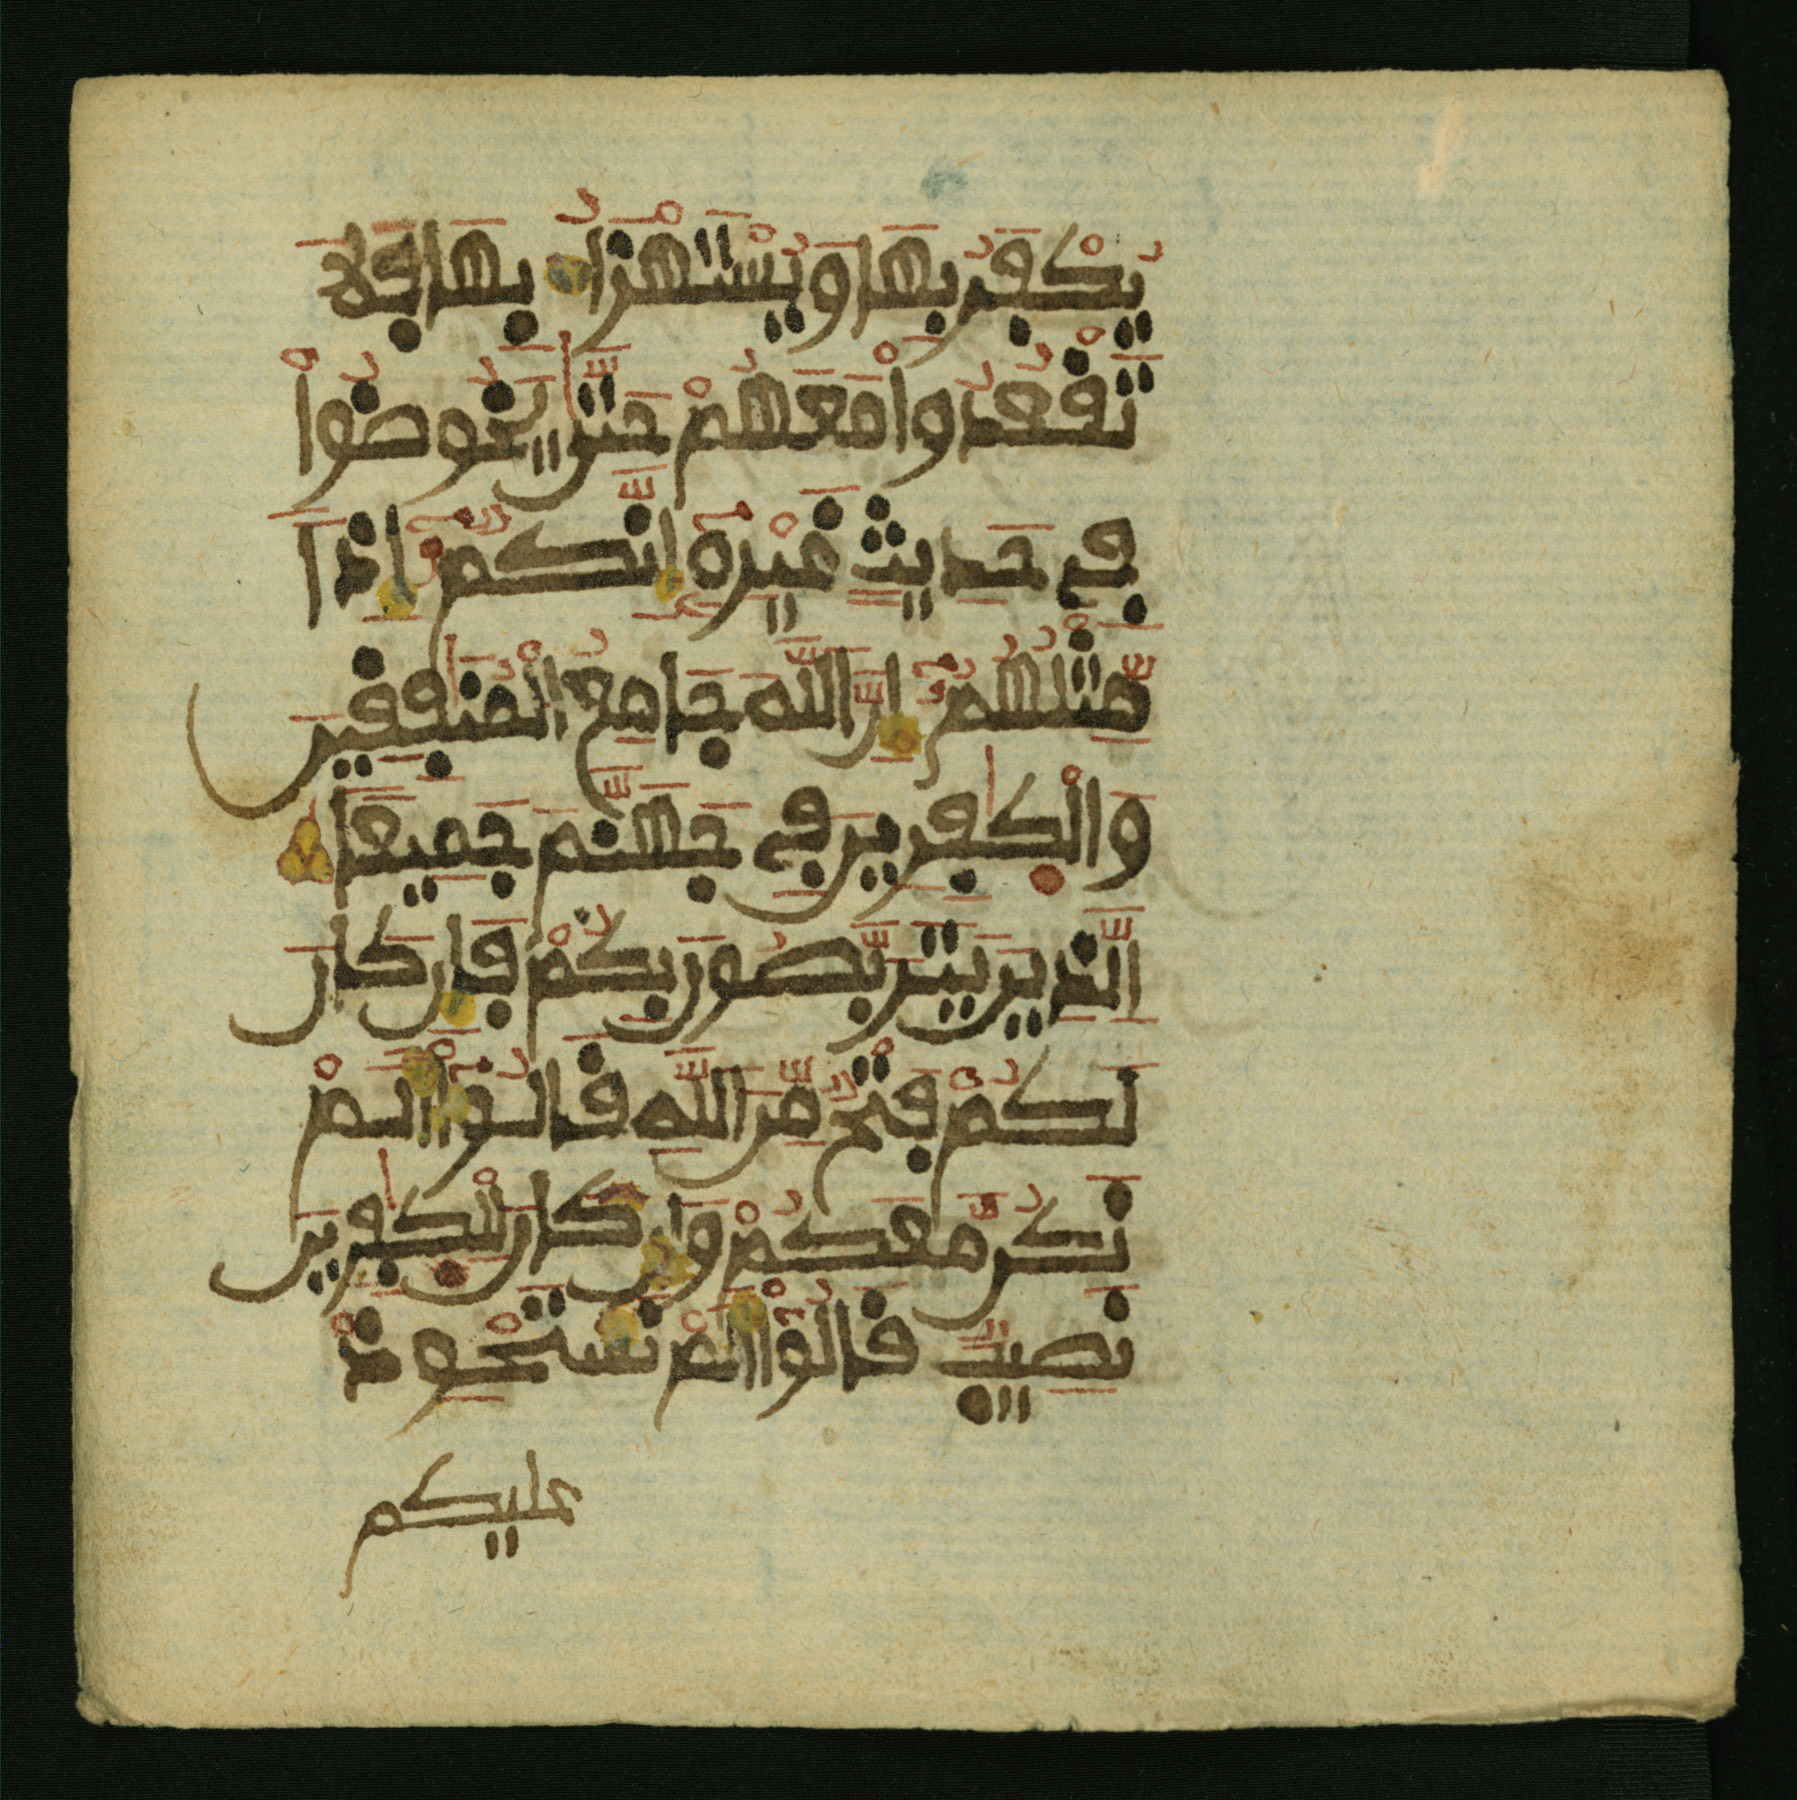 يُكْفَرُ بِهَا وَيُسْتَهْزَأُ بِهَا فَلَا
تَقْعُدُواْ مَعَهُمْ حَتَّىٰ يَخُوضُواْ
فِي حَدِيثٍ غَيْرِهِ إِنَّكُمُ إِذاً
مِّثْلُهُمُ إِنَّ اللَّهَ جَامِعُ الْمُنَٰفِقِينَ
وَالْكَٰفِرِينَ فِي جَهَنَّمَ جَمِيعاً
الَّذِينَ يَتَرَبَّصُونَ بِكُمْ فَإِن كَانَ
لَكُمْ فَتْحٌ مِّنَ اللَّهِ قَالُواْ أَلَمْ
نَكُن مَّعَكُمْ وَإِن كَانَ لِلْكَٰفِرِينَ
نَصِيبٌ قَالُواْ أَلَمْ نَسْتَحْوِذْ
عليكم